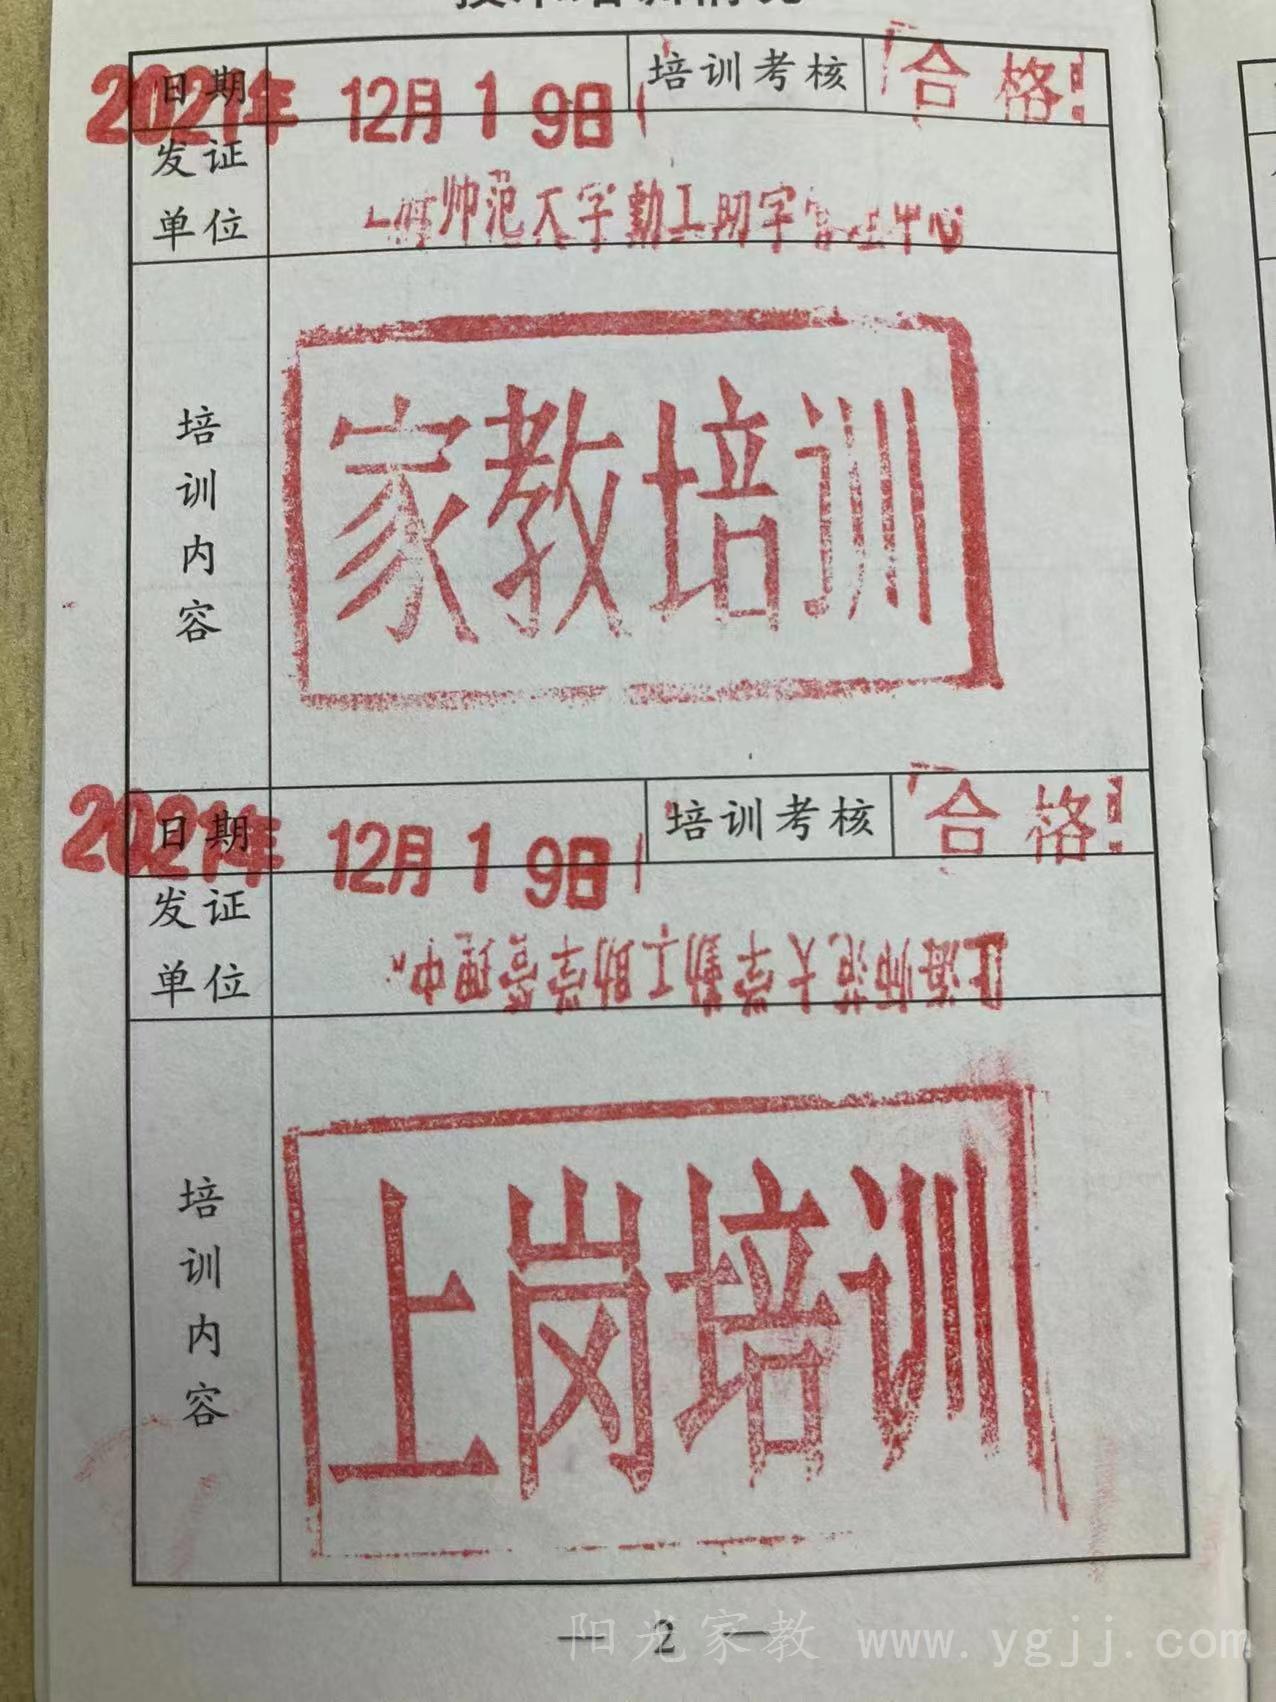 日期 2021年 12月19日 培训考核 合格
发证
单位 师范大学勤工助学管理中心
培训内容 家教培训
日期 2021年 12月19日 培训考核 合格
发证
单位 上海师范大学勤工助学管理中
培训内容 上岗培训
— 2 —
阳光家教 www.ygjj.com